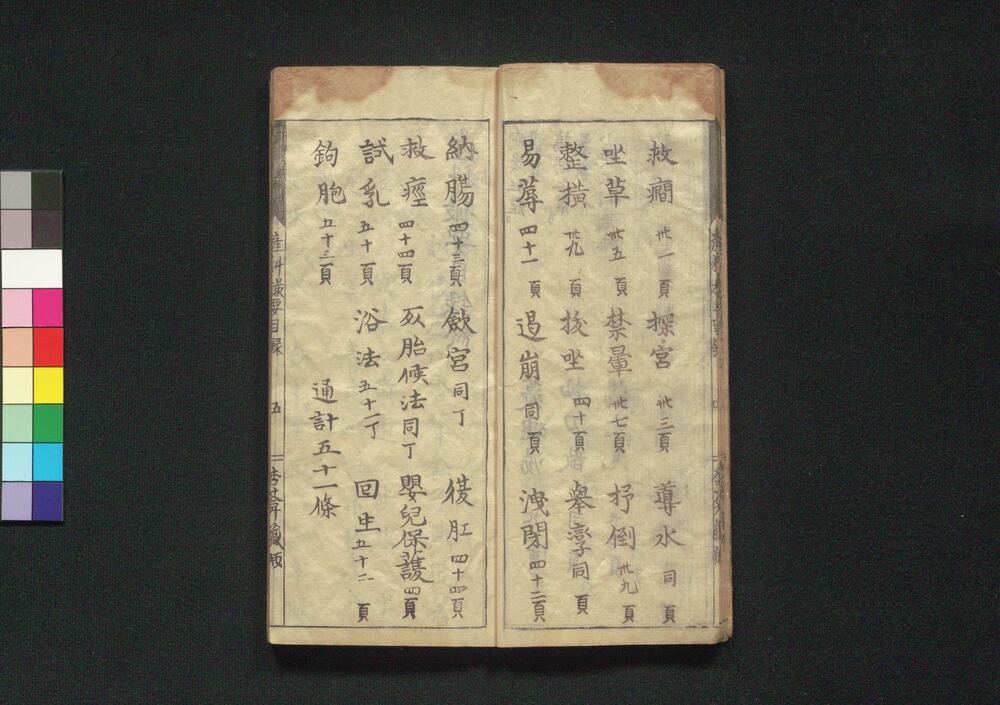 救癇 卅二頁 探宮 卅三頁 導水 同頁
坐草 卅五頁 禁暈 卅七頁 抒倒 卅九頁
整横 卅九頁 按坐 四十頁 舉孿 同頁
易蓐 四十一頁 遏崩 同頁 洩閉 四十二頁
納腸 四十三頁 斂宮 同丁 復肛 四十四頁
救痙 四十四頁 死胎候法 同丁 嬰兒保護 四頁
試乳 五十頁 浴法 五十一丁 回生 五十二頁
鉤胞 五十三頁
通計五十一條
産科撮要目録 五